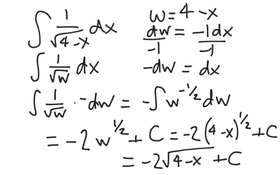 ∫ 1/√(4-x) dx    w = 4 - x
dw/-1 = -1dx/-1
∫ 1/√w dx    -dw = dx
∫ 1/√w · -dw = -∫ w^(-1/2) dw
= -2 w^(1/2) + C = -2(4-x)^(1/2) + C
= -2√(4-x) + C